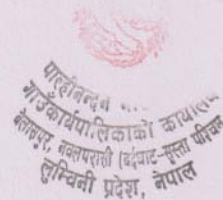 पाल्हीनन्दन
गाउँकार्यपालिकाको कार्यालय
नवलपरासी (बर्दघाट-सुस्ता पश्चिम
लुम्बिनी प्रदेश, नेपाल